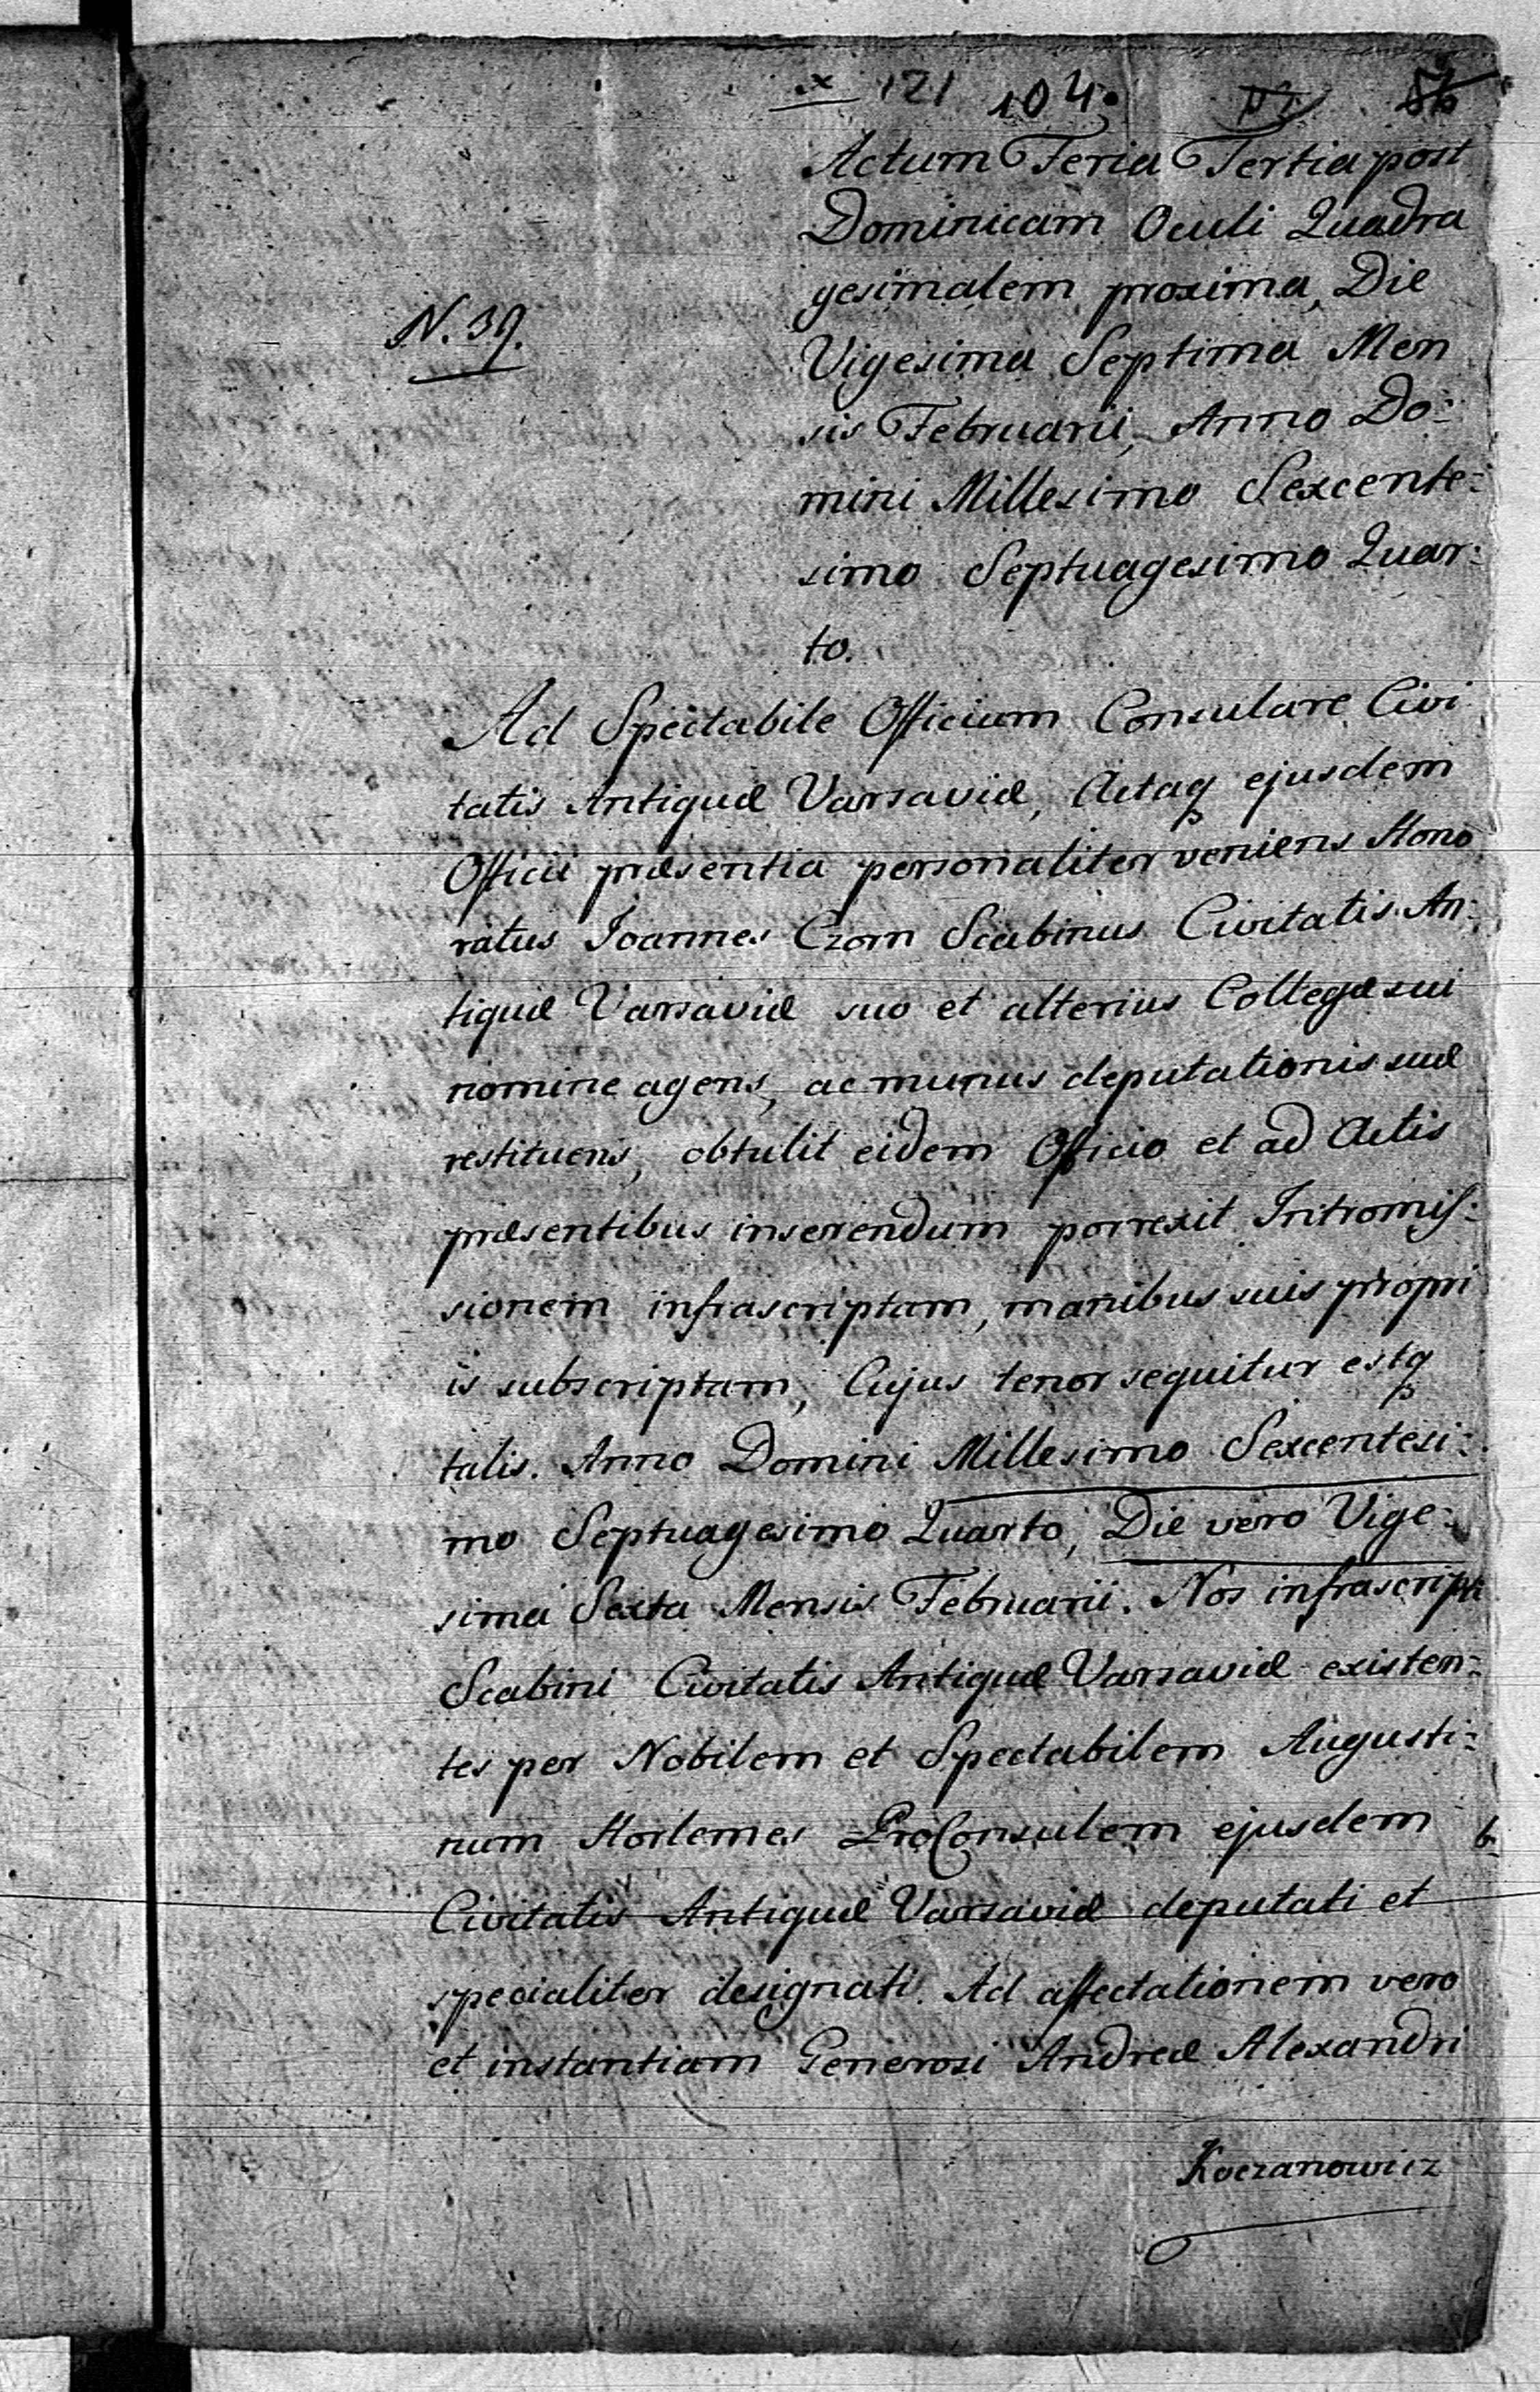 x 121 104.
Actum Feria Tertia post
Dominicam Oculi Quadra
gesimalem proxima, Die
N. 39.
Vigesima Septima Men
sis Februarii, Anno Do-
mini Millesimo Sexcente-
simo Septuagesimo Quar-
to.
Ad Spectabile Officium Consulare Civi
tatis Antiquæ Varsaviæ, Actaq ejusdem
Officii præsentia personaliter veniens Hono
ratus Joannes Czom Scabinus Civitatis An-
tiquæ Varsaviæ suo et alterius Collegæ sui
nomine agens, ac munus deputationis suæ
restituens, obtulit eidem Officio et ad Actis
præsentibus inserendum porrexit Intromis-
sionem infrascriptam, manibus suis propri
is subscriptam, Cujus tenor sequitur estq
talis. Anno Domini Millesimo Sexcentesi-
mo Septuagesimo Quarto, Die vero Vige-
sima Sexta Mensis Februarii. Nos infrascripti
Scabini Civitatis Antiquæ Varsaviæ existen-
tes per Nobilem et Spectabilem Augusti-
num Horlemes ProConsulem ejusdem
Civitatis Antiquæ Varsaviæ deputati et
specialiter designati. Ad affectationem vero
et instantiam Generosi Andreæ Alexandri
Koczanowicz